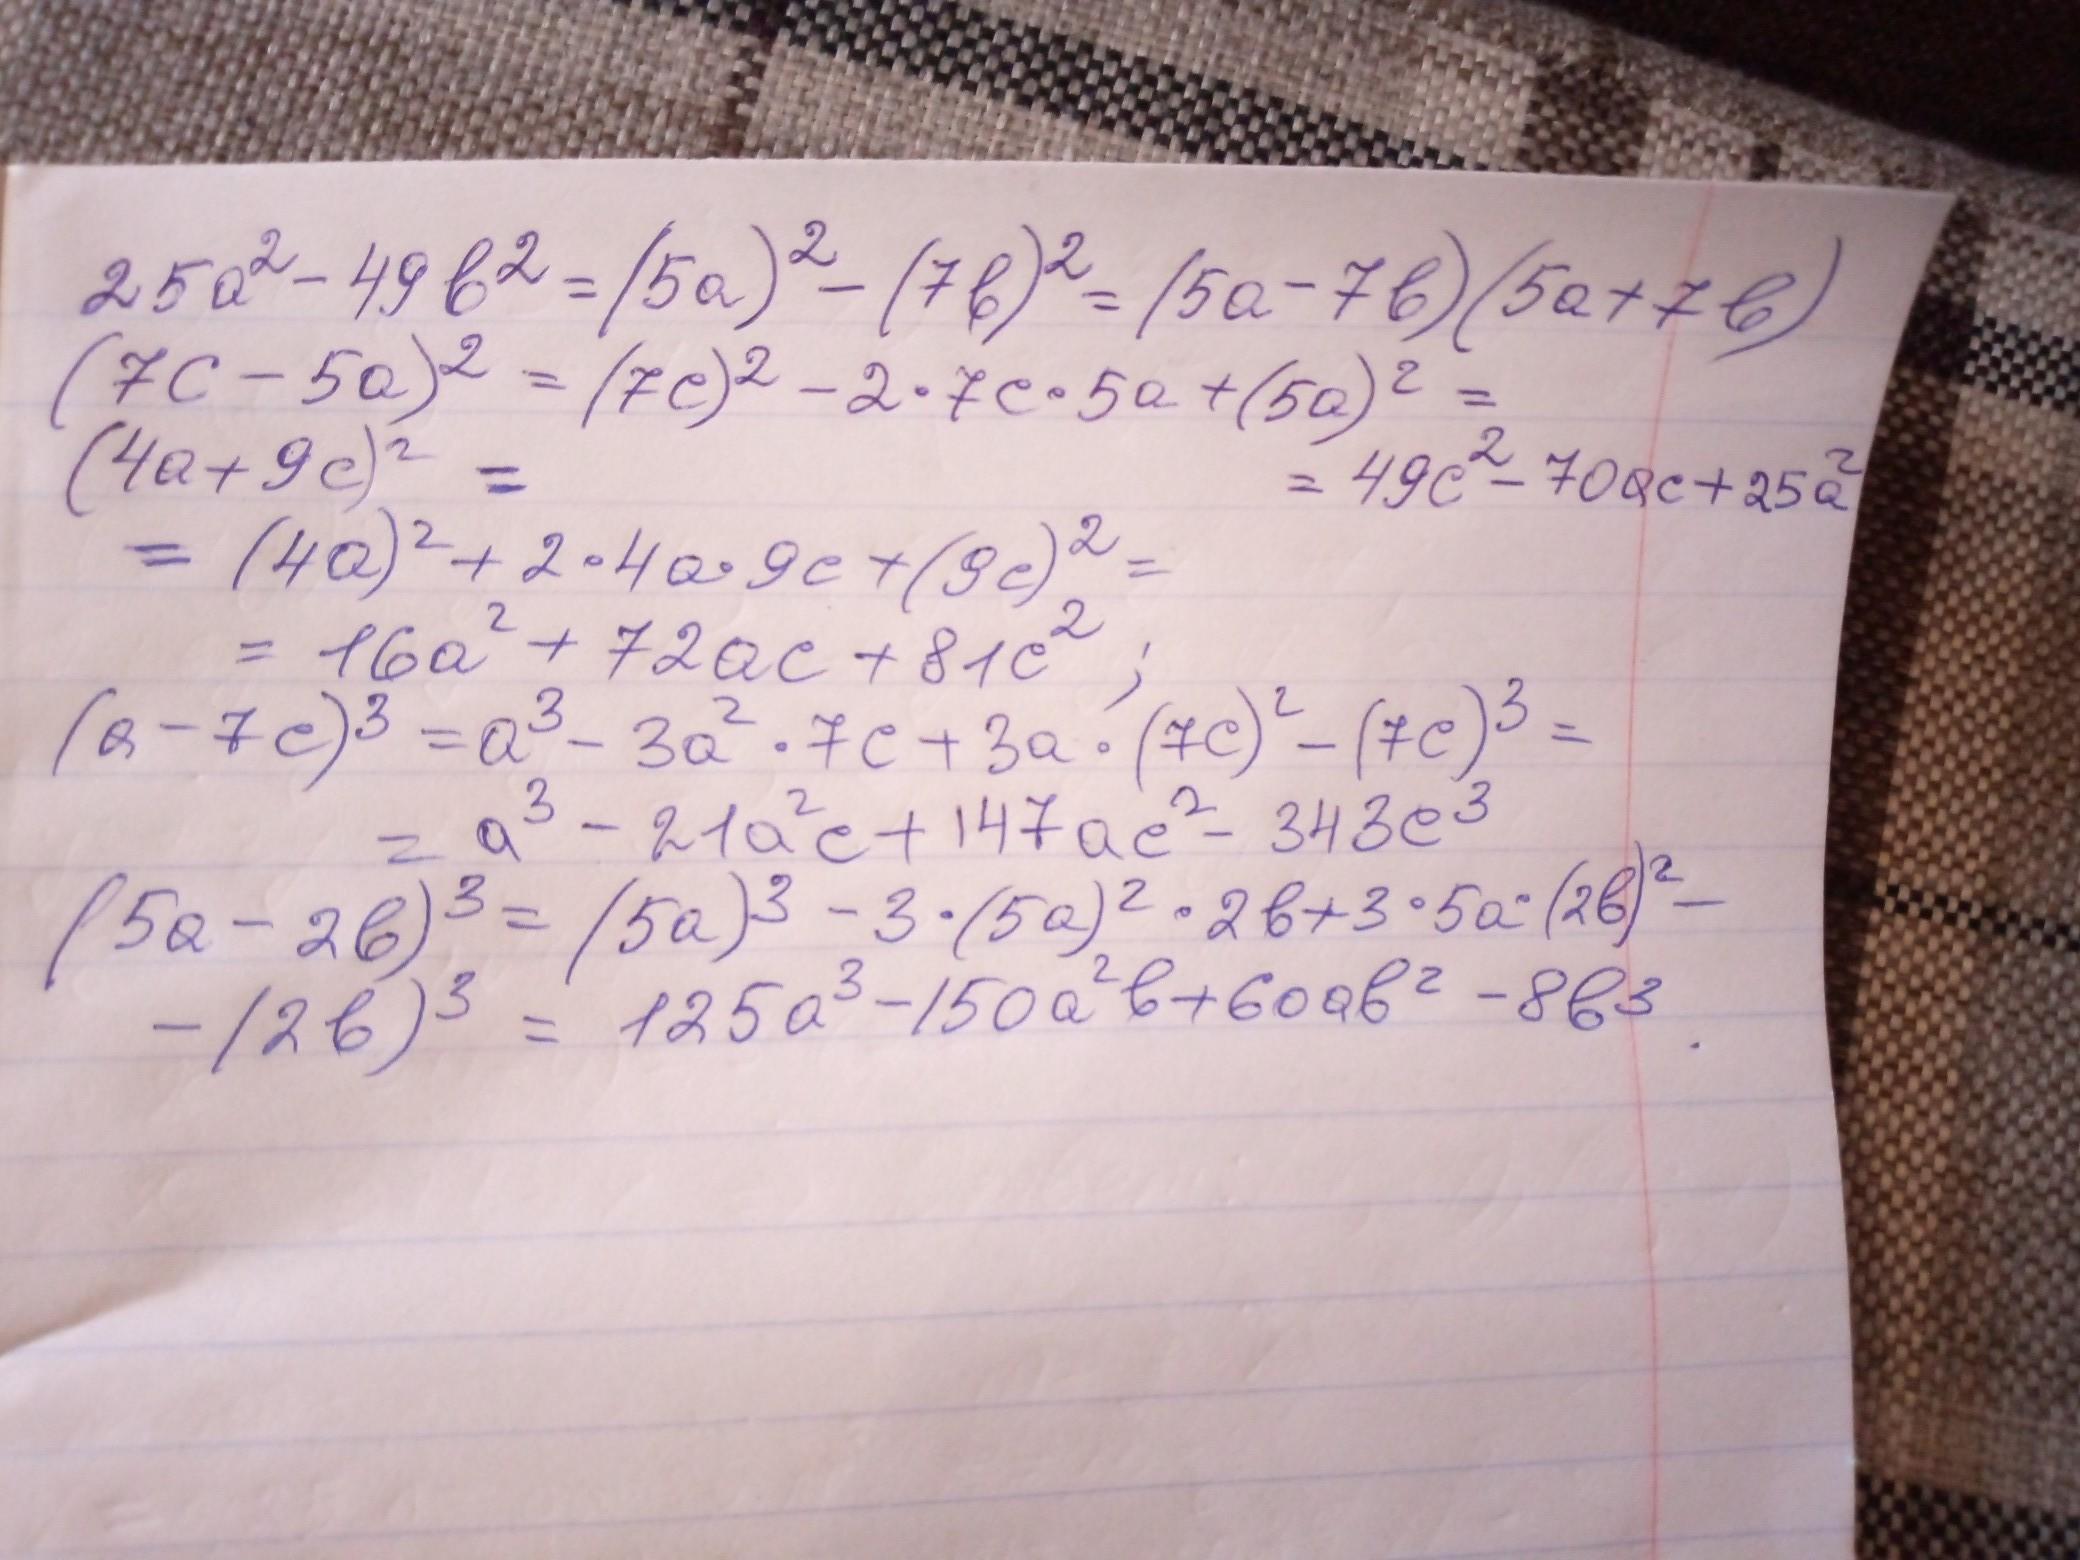 25a² - 49b² = (5a)² - (7b)² = (5a - 7b)(5a + 7b)
(7c - 5a)² = (7c)² - 2 · 7c · 5a + (5a)² =
= 49c² - 70ac + 25a²
(4a + 9c)² =
= (4a)² + 2 · 4a · 9c + (9c)² =
= 16a² + 72ac + 81c² ;
(a - 7c)³ = a³ - 3a² · 7c + 3a · (7c)² - (7c)³ =
= a³ - 21a²c + 147ac² - 343c³
(5a - 2b)³ = (5a)³ - 3 · (5a)² · 2b + 3 · 5a · (2b)² -
- (2b)³ = 125a³ - 150a²b + 60ab² - 8b³ .